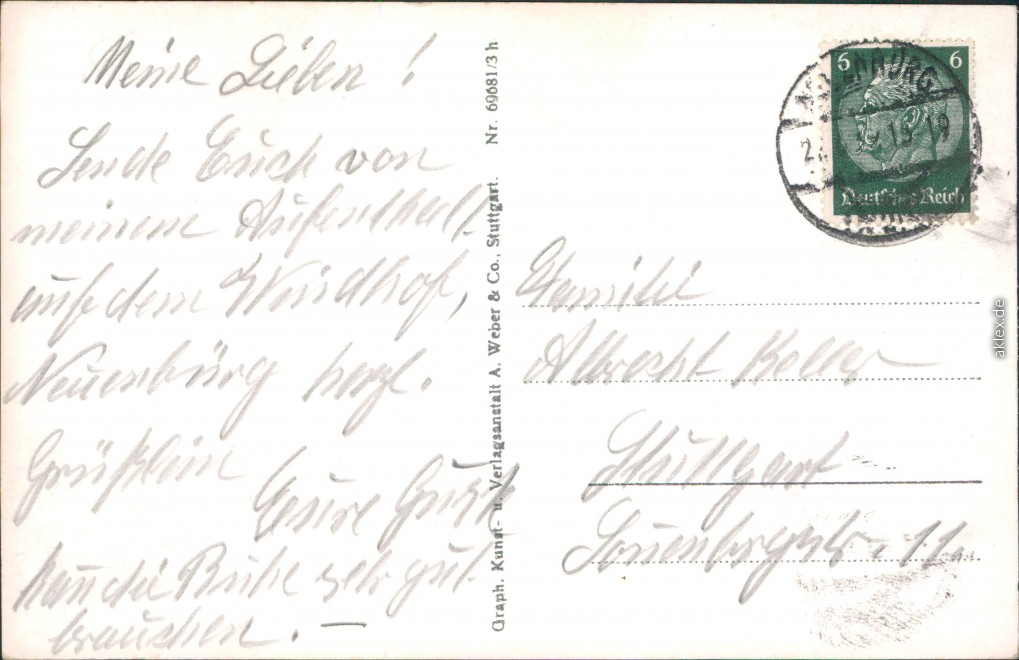 Meine Lieben!
Sende Euch von
meinem Aufenthalt
auf dem Windhof,
Neuenbürg herzl.
Grüßlein
Eure
kann die Ruhe sehr gut
brauchen. —
Graph. Kunst- u. Verlagsanstalt A. Weber & Co., Stuttgart. Nr. 69681/3 h
6 6
Deutsches Reich
19
Familie
Albrecht Keller
Stuttgart
11.
aklex.de